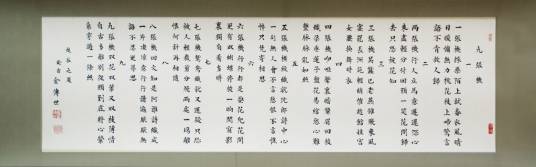 九張機
一
一張機採桑陌上試春衣風晴
日暖慵無力桃花枝上啼鶯言
語不肯放人歸
二
兩張機行人立馬意遲遲深心
未忍輕分付回頭一笑花間歸
去只恐被花知
三
三張機吳蠶已老燕雛飛東風
宴罷長洲苑輕綃催趁館娃宮
女要換舞時衣
四
四張機咿啞聲裏暗顰眉回梭
織朵垂蓮子盤花易綰愁心難
整脈脈亂如絲
五
五張機橫紋織就沈郎詩中心
一句無人會不言愁恨不言憔
悴只恁寄相思
六
六張機行行都是耍花兒花間
更有雙蝴蝶停梭一晌閒窗影
裏獨自看多時
七
七張機鴛鴦織就又遲疑只恐
被人輕裁剪分飛兩處一場離
恨何計再相隨
八
八張機回文知是阿誰詩織成
一片淒涼意行行讀遍厭厭無
語不忍更尋思
九
九張機雙花雙葉又雙枝薄情
自古多離別從頭到底將心縈
繫穿過一條絲
金傳世